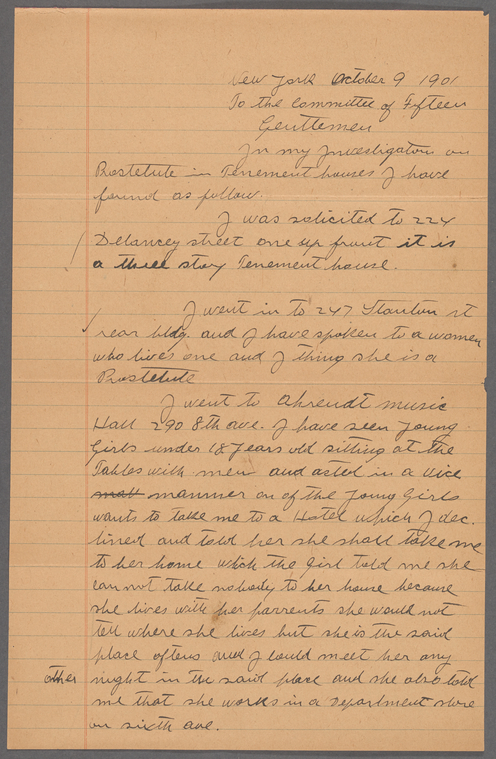 New York October 9 1901
To the Committee of Fifteen
Genttemen
In my Jnvestigation on
Prostetute in Tenement houses J have
found as follow.
J was solicited to 224
Delancey street one up front it is
a three story Tenement house.
J went in to 247 Stanton st
rear bldg. and J have spoken to a women
who lives one and J thing she is a
Prostetute
J went to Ahrendt music
Hall 290 8th ave. J have seen Young
Girls under 18 years old sitting at the
Tables with men and acted in a vice
manner on of the Joung Girls
wants to take me to a Hotel which J dec.
lined and told her she shall take me
to her home which the girl told me she
can not take nobody to her house because
she lives with her parrents she would not
tell where she lives but she is the said
place oftens and J could meet her any
other night in the said place and she also told
me that she works in a Department store
on sixth ave.